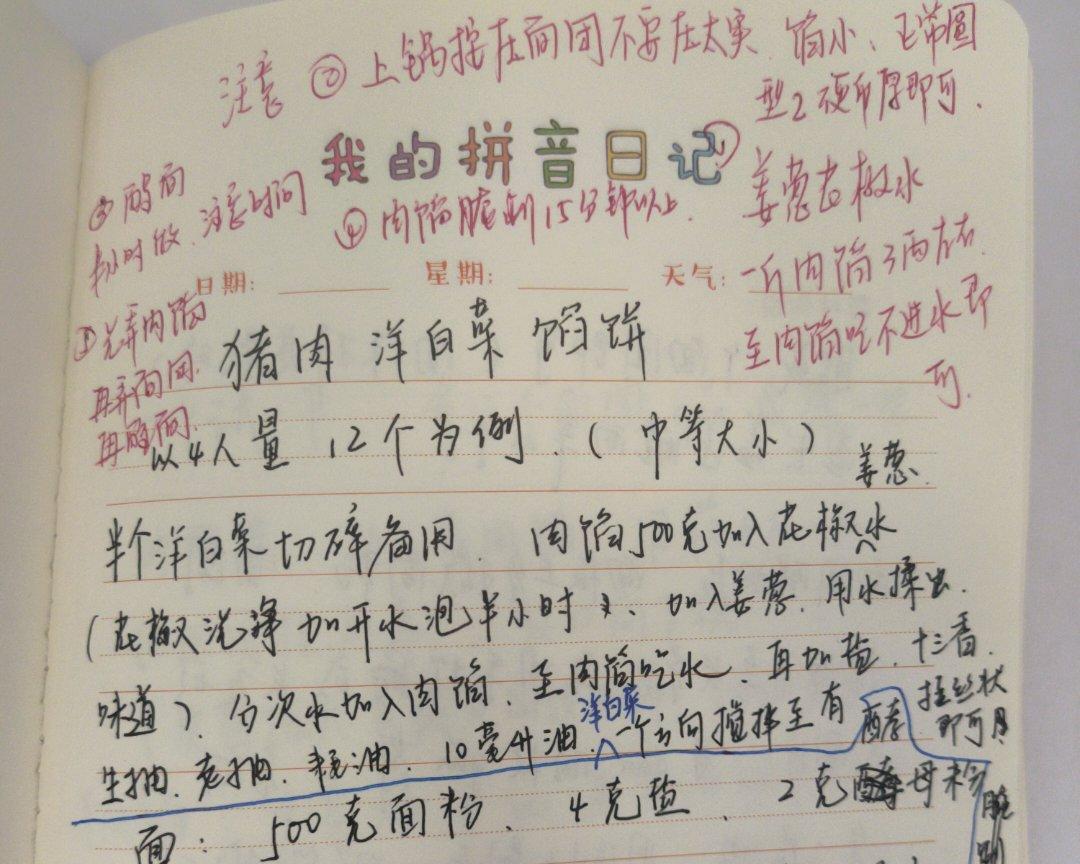 注意 ② 上锅按压面团不要压太实、馅小、正常圆
型2硬币厚即可.
我的拼音日记
③ 醒面
半小时做、注意时间
④ 肉馅腌制15分钟以上.
① 姜葱花椒水
一斤肉馅3两左右.
至肉馅吃不进水即
可.
日期: 星期: 天气:
① 先弄肉馅
再弄面团.
再醒面.
猪肉 洋白菜 馅饼
以4人量 12个为例.(中等大小)
姜葱.
半个洋白菜切碎备用. 肉馅500克加入花椒水
(花椒洗净加开水泡半小时、加入姜葱.用水揉出.
味道)分次水加入肉馅.至肉馅吃水.再加盐.十三香.
生抽.老抽.耗油.10毫升油.洋白菜 一个方向搅拌至有
拉丝状
即可用
腌制
面: 500克面粉. 4克盐. 2克酵母粉